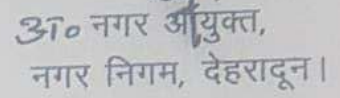 अ० नगर आयुक्त,
नगर निगम, देहरादून।